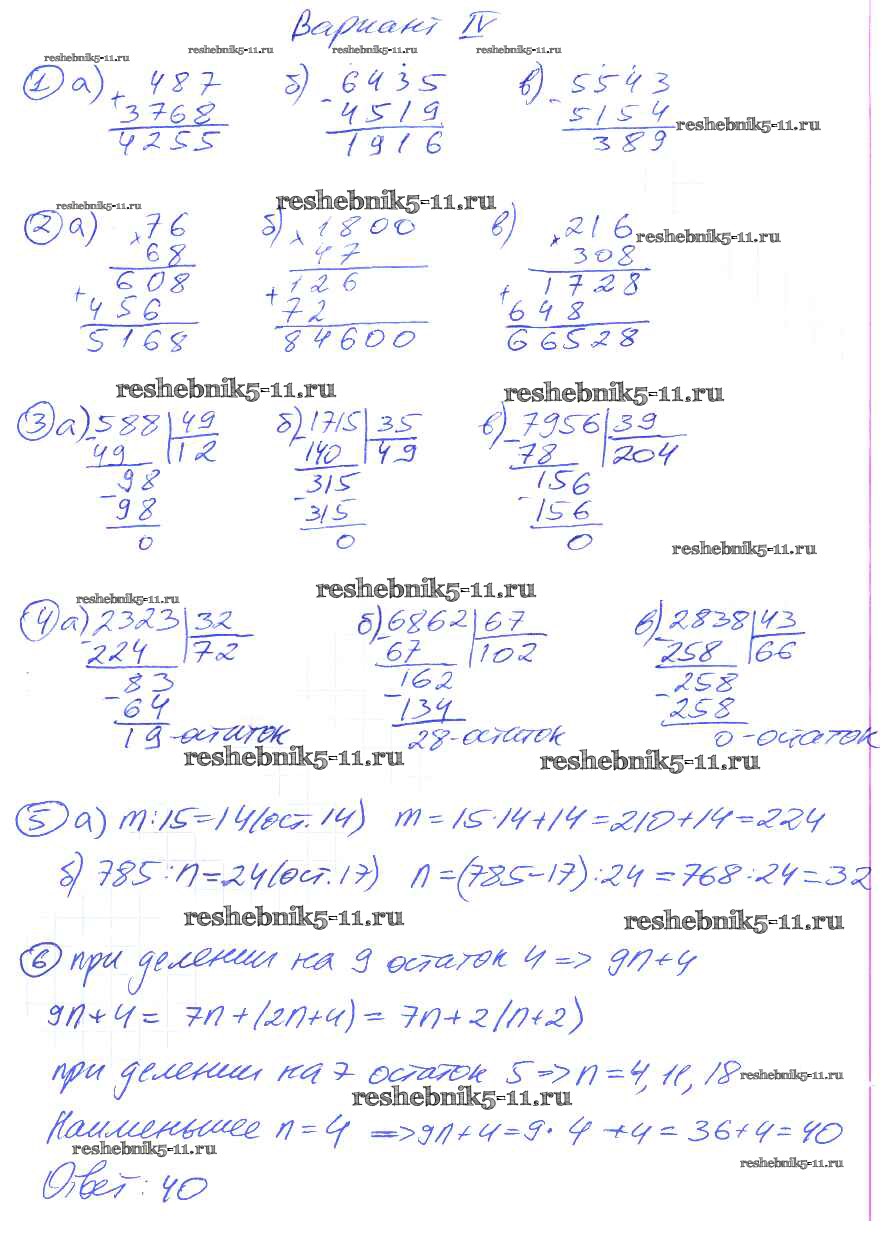 Вариант IV
reshebnik5-11.ru reshebnik5-11.ru reshebnik5-11.ru reshebnik5-11.ru
① а) 487 б) 6435 в) 5543
+ 3768 - 4519 - 5154 reshebnik5-11.ru
4255 1916 389
reshebnik5-11.ru reshebnik5-11.ru
② а) × 76 б) × 1800 в) × 216 reshebnik5-11.ru
68 47 308
608 126 1728
+ 456 + 72 + 648
5168 84600 66528
reshebnik5-11.ru reshebnik5-11.ru
③ а) - 588 | 49 б) - 1715 | 35 в) - 7956 | 39
49 | 12 140 | 49 78 | 204
- 98 - 315 - 156
98 315 156
0 0 0 reshebnik5-11.ru
reshebnik5-11.ru reshebnik5-11.ru
④ а) - 2323 | 32 б) - 6862 | 67 в) - 2838 | 43
224 | 72 67 | 102 258 | 66
- 83 - 162 - 258
64 134 258
19 - остаток 28 - остаток 0 - остаток
reshebnik5-11.ru reshebnik5-11.ru
⑤ а) m:15=14(ост.14) m=15·14+14=210+14=224
б) 785:n=24(ост.17) n=(785-17):24=768:24=32
reshebnik5-11.ru reshebnik5-11.ru
⑥ при делении на 9 остаток 4 => 9n+4
9n+4= 7n+(2n+4)= 7n+2(n+2)
при делении на 7 остаток 5=>n=4, 11, 18 reshebnik5-11.ru
reshebnik5-11.ru
Наименьшее n=4 =>9n+4=9·4+4=36+4=40
reshebnik5-11.ru reshebnik5-11.ru
Ответ: 40